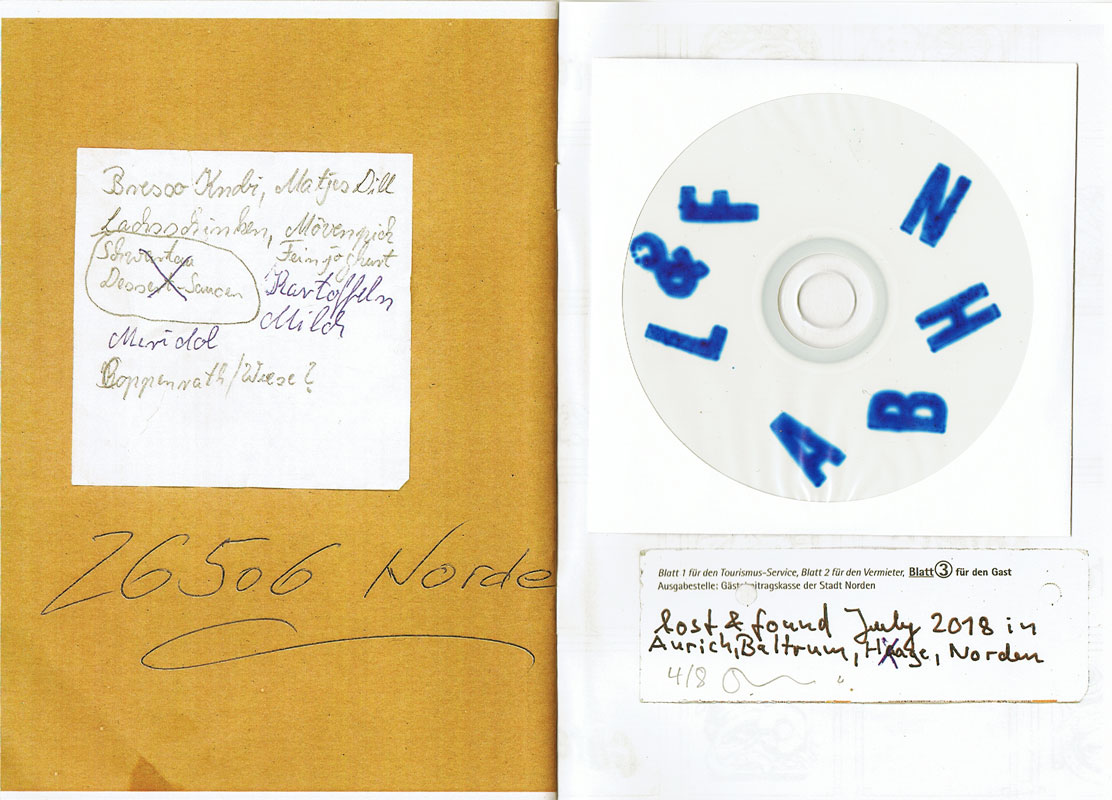 Bresso Knobi, Matjes Dill
Lachsschinken, Mövenpick
Schwartau Feinjoghurt
Dessert-Saucen Kartoffeln
Milch
Meridol
Coppenrath/Wiese?
26506 Norde
L & F
A B H N
Blatt 1 für den Tourismus-Service, Blatt 2 für den Vermieter, Blatt 3 für den Gast
Ausgabestelle: Gästebeitragskasse der Stadt Norden
lost & found July 2018 in
Aurich, Baltrum, Hage, Norden
4/8